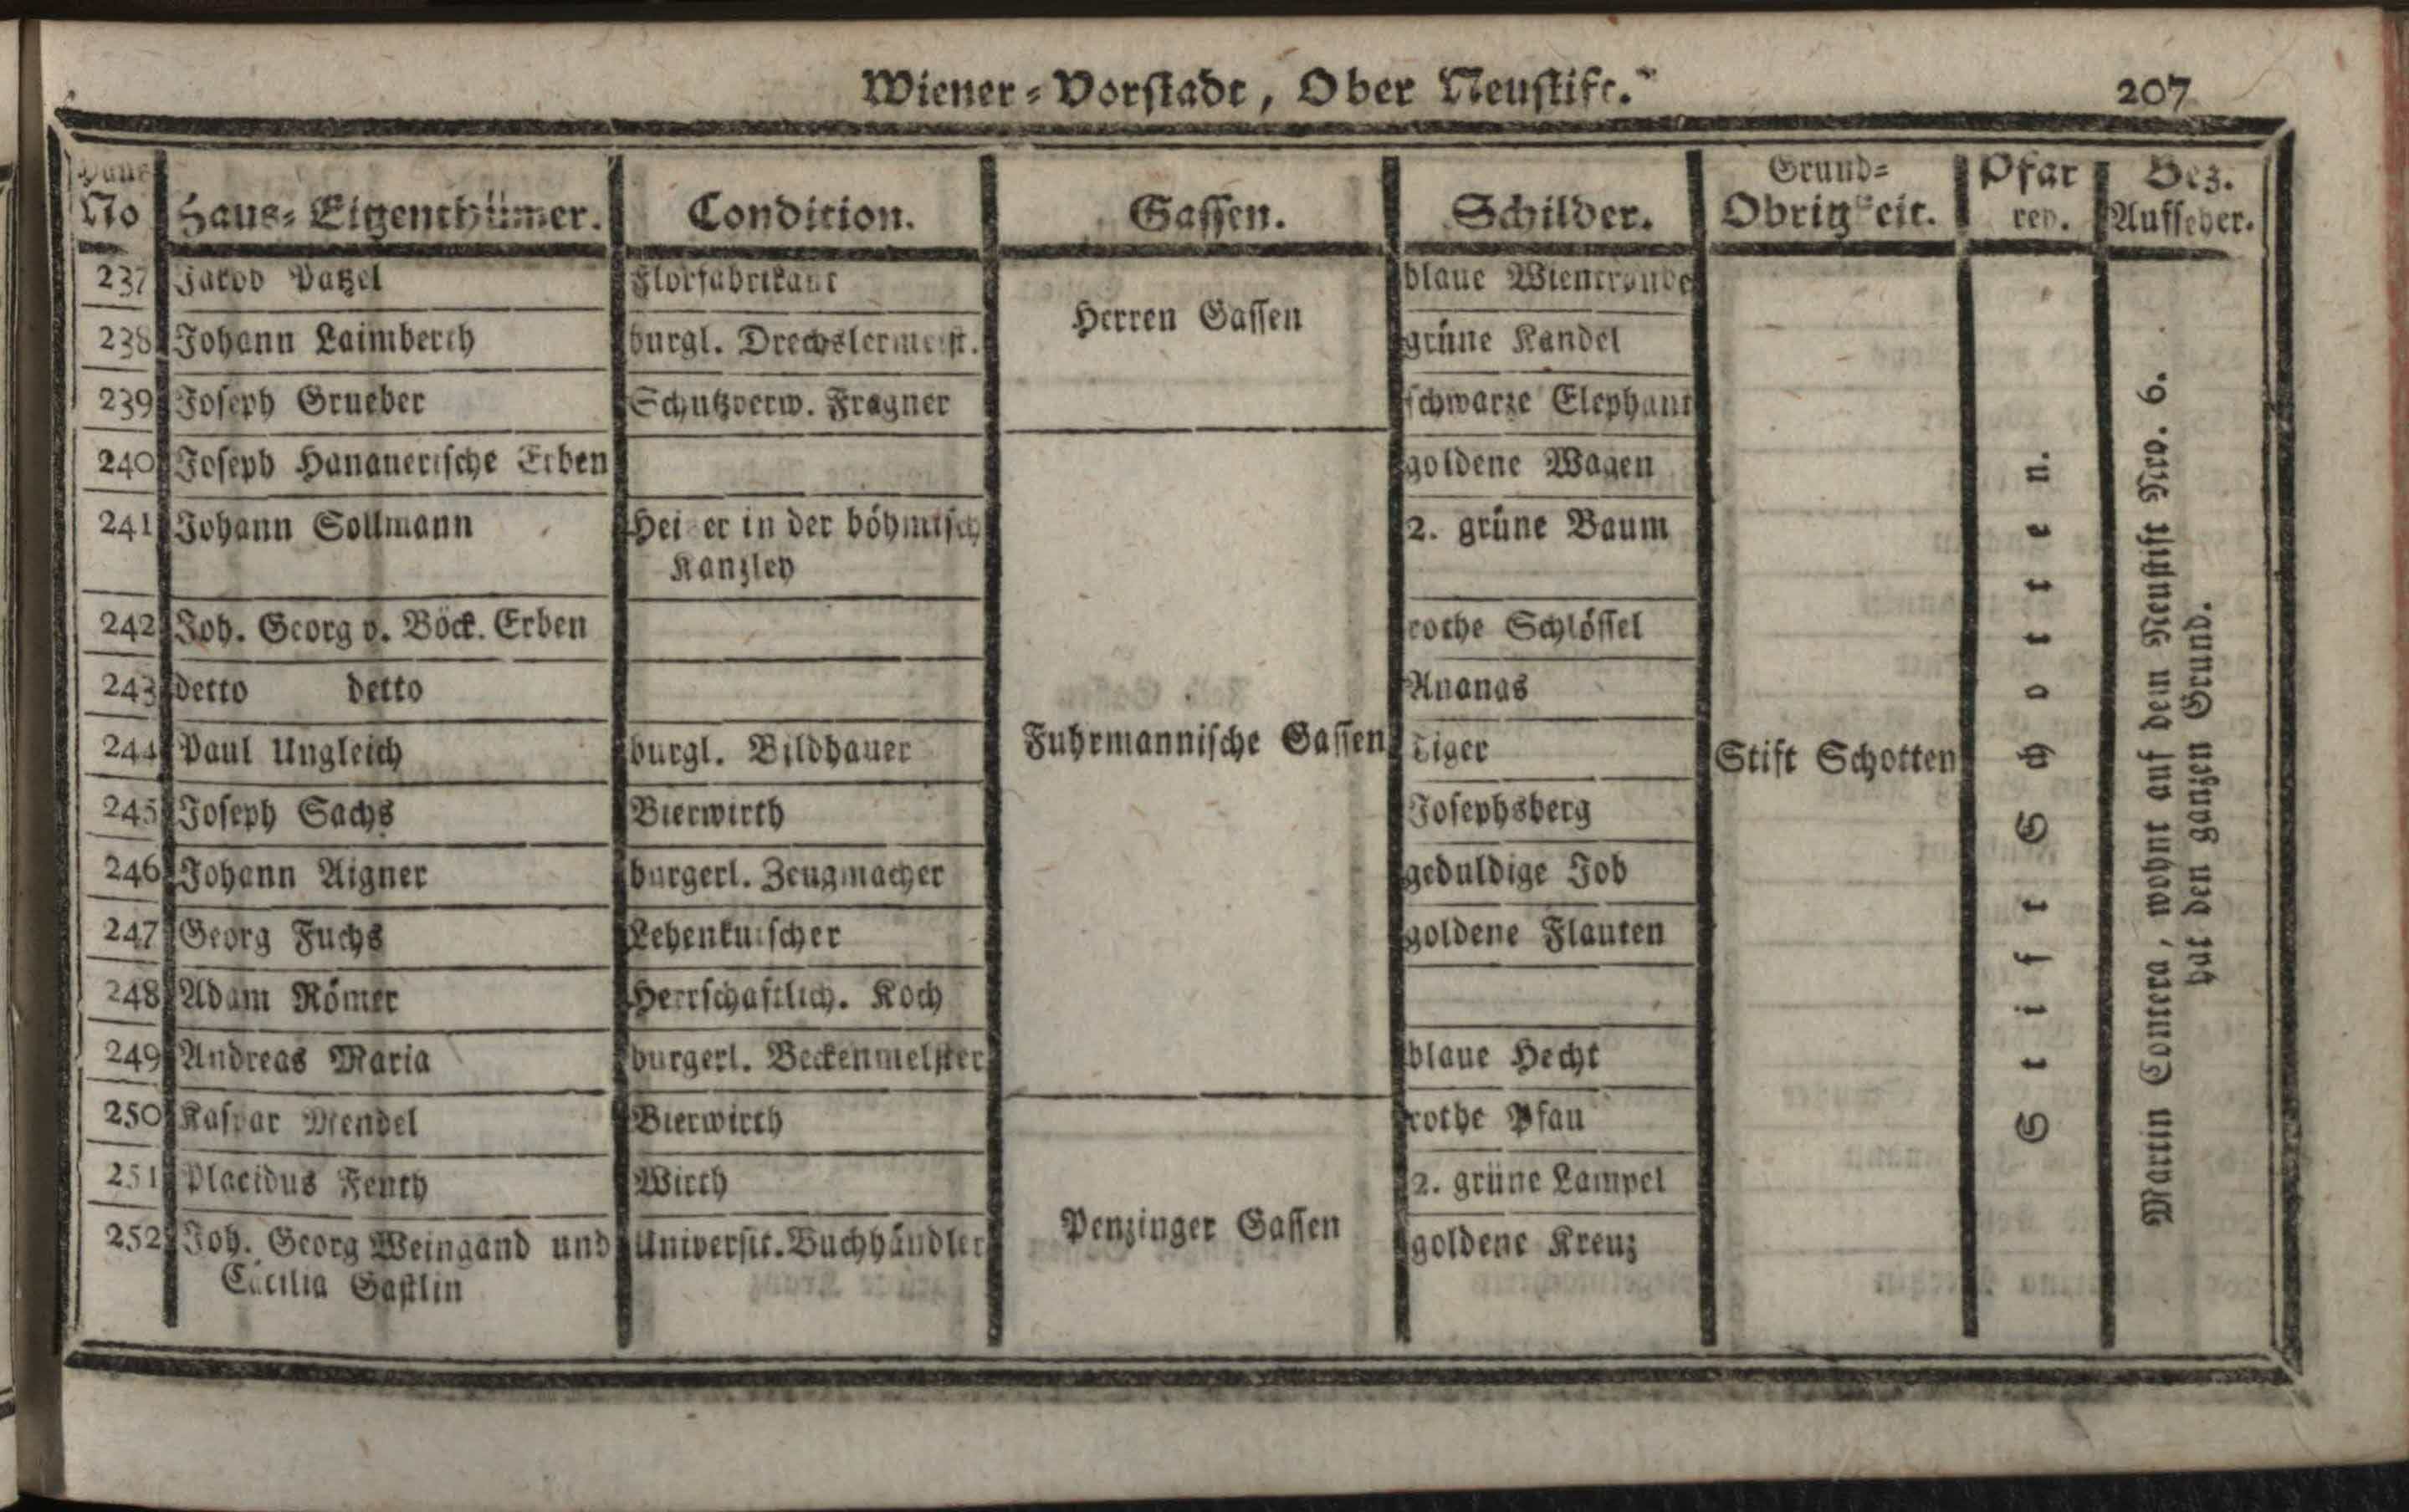 Wiener-Vorstadt, Ober Neustift. 207
Haus No Haus-Eigenthümer. Condition. Gassen. Schilder. Grund-Obrigkeit. Pfarren. Bez. Aufseher.
237 Jacob Patzel Florfabrikant blaue Wientraube
Herren Gassen
238 Johann Laimberth burgl. Drechslermeist. grüne Kandel
239 Joseph Grueber Schutzverw. Fragner schwarze Elephant
240 Joseph Hanauerische Erben goldene Wagen
241 Johann Sollmann in der böhmisch 2. grüne Baum
Kanzley
242 Joh. Georg v. Böck. Erben rothe Schlössel
243 detto detto Ananas
244 Paul Ungleich burgl. Bildhauer Fuhrmannische Gassen Tiger Stift Schotten
245 Joseph Sachs Bierwirth Josephsberg
246 Johann Aigner burgerl. Zeugmacher geduldige Job
247 Georg Fuchs Lehenkutscher goldene Flauten
248 Adam Römer Herrschaftlich. Koch
249 Andreas Maria burgerl. Beckenmeister blaue Hecht
250 Kaspar Mendel Bierwirth rothe Pfau
251 Placidus Fenth Wirth 2. grüne Lampel
252 Joh. Georg Weingand und Universit. Buchhändler Penzinger Gassen goldene Kreuz
Cäcilia Gastlin
Stift Schotten.
Martin Contera, wohnt auf dem Neustift Nro. 6.
hat den ganzen Grund.